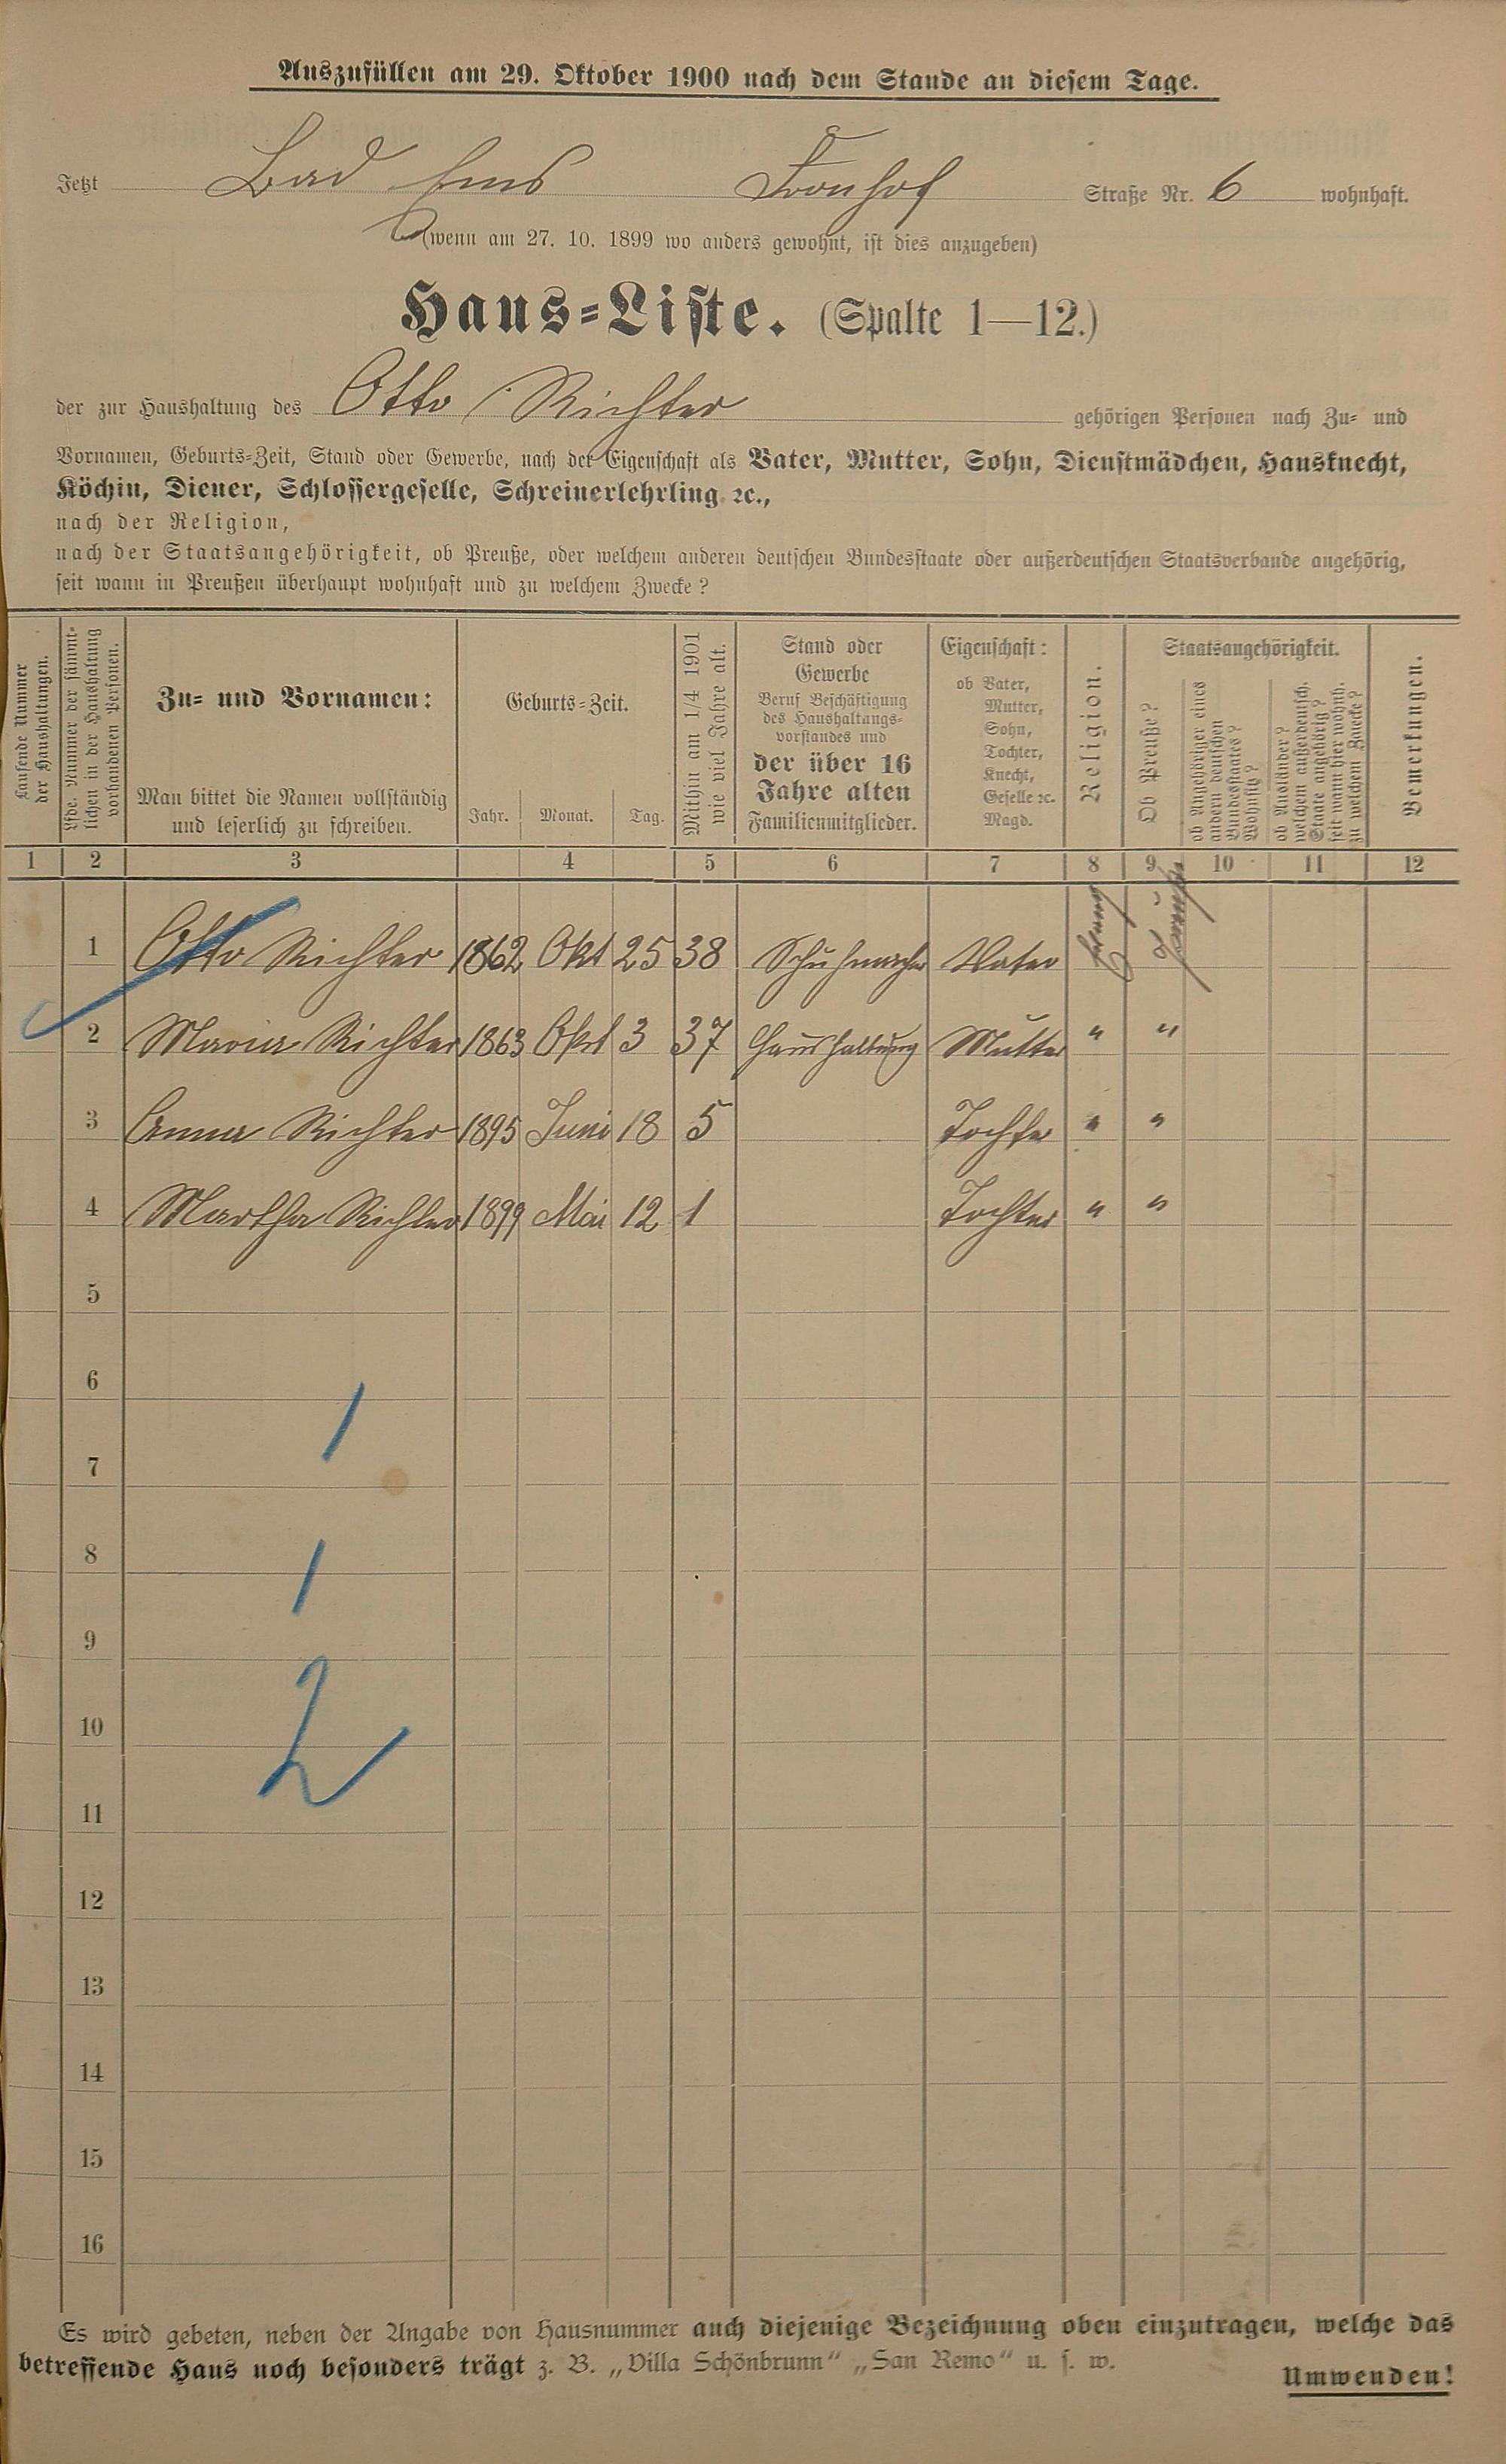 Auszufüllen am 29. Oktober 1900 nach dem Stande an diesem Tage.
Jetzt Bad Ems Fronhof Straße Nr. 6 wohnhaft.
(wenn am 27. 10. 1899 wo anders gewohnt, ist dies anzugeben)
Haus=Liste. (Spalte 1—12.)
der zur Haushaltung des Otto Richter gehörigen Personen nach Zu= und
Vornamen, Geburts=Zeit, Stand oder Gewerbe, nach der Eigenschaft als Vater, Mutter, Sohn, Dienstmädchen, Hausknecht,
Köchin, Diener, Schlossergeselle, Schreinerlehrling ꝛc.,
nach der Religion,
nach der Staatsangehörigkeit, ob Preuße, oder welchem anderen deutschen Bundesstaate oder außerdeutschen Staatsverbande angehörig,
seit wann in Preußen überhaupt wohnhaft und zu welchem Zwecke ?
Laufende Nummer
der Haushaltungen.
Lfde. Nummer der sämmt-
lichen in der Haushaltung
vorhandenen Personen.
Zu= und Vornamen:
Man bittet die Namen vollständig
und leserlich zu schreiben.
Geburts=Zeit.
Jahr. Monat. Tag.
Mithin am 1/4 1901
wie viel Jahre alt.
Stand oder
Gewerbe
Beruf Beschäftigung
des Haushaltungs=
vorstandes und
der über 16
Jahre alten
Familienmitglieder.
Eigenschaft:
ob Vater,
Mutter,
Sohn,
Tochter,
Knecht,
Geselle ꝛc.
Magd.
Religion.
Staatsangehörigkeit.
Ob Preuße ?
ob Angehöriger eines
andern deutschen
Bundesstaates ?
Wohnsitz ?
ob Ausländer ?
welchem außerdeutsch.
Staate angehörig ?
seit wann hier wohnh.
zu welchem Zwecke ?
Bemerkungen.
1 2 3 4 5 6 7 8 9 10 11 12
1 Otto Richter 1862 Okt 25 38 Schuhmacher Vater Evang Preuße
2 Maria Richter 1863 Okt 3 37 Haushaltung Mutter " "
3 Anna Richter 1895 Juni 18 5 Tochter " "
4 Martha Richter 1899 Mai 12 1 Tochter " "
5
6
1
7
8
1
9
10
2
11
12
13
14
15
16
Es wird gebeten, neben der Angabe von Hausnummer auch diejenige Bezeichnung oben einzutragen, welche das
betreffende Haus noch besonders trägt z. B. „Villa Schönbrunn" „San Remo" u. s. w.
Umwenden!